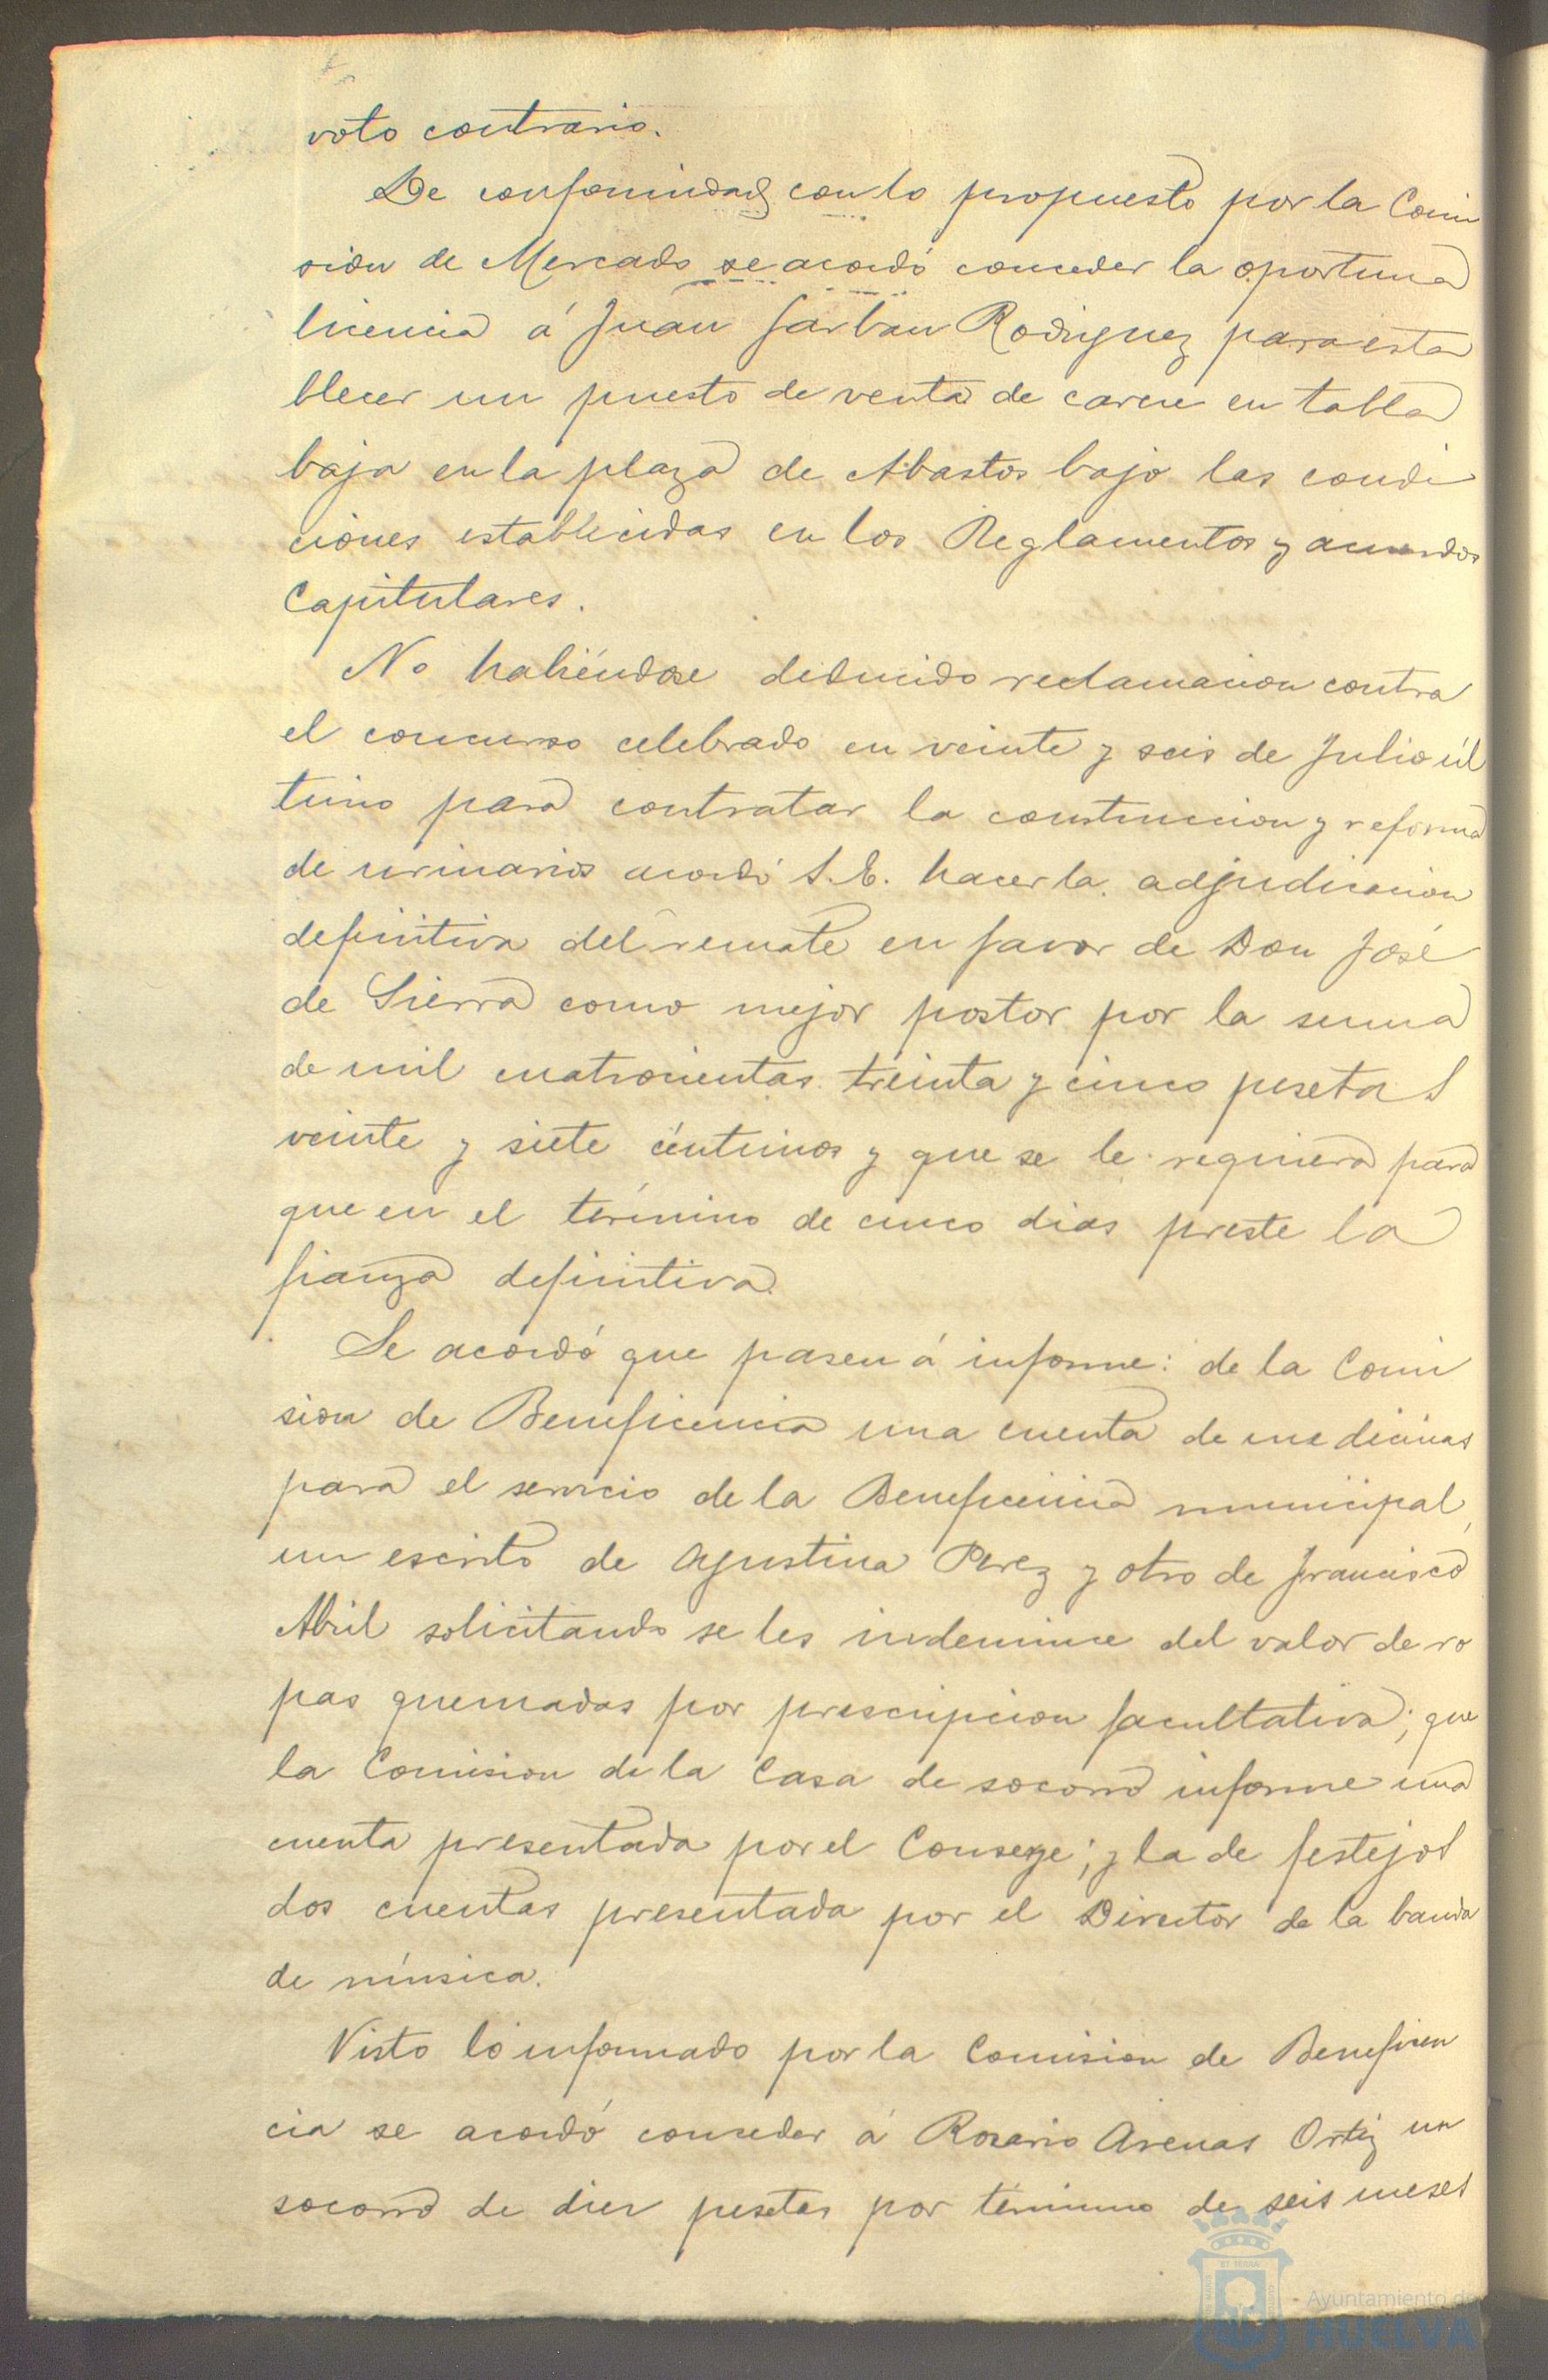 voto contrario.
De conformidad con lo propuesto por la Comi
sion de Mercado se acordó conceder la oportuna
licencia á Juan Garban Rodriguez para esta
blecer un puesto de venta de carne en tabla
baja en la plaza de Abastos bajo las condi
ciones establecidas en los Reglamentos y acuerdos
Capitulares.
No habiéndose deducido reclamacion contra
el concurso celebrado en veinte y seis de Julio úl
timo para contratar la construccion y reforma
de urinarios acordó S. E. hacer la adjudicacion
definitiva del remate en favor de Don José
de Sierra como mejor postor por la suma
de mil cuatrocientas treinta y cinco pesetas
veinte y siete céntimos y que se le requiera para
que en el término de cinco dias preste la
fianza definitiva.
Se acordó que pasen á informe: de la Comi
sion de Beneficencia una cuenta de medicinas
para el servicio de la Beneficencia municipal,
un escrito de Agustina Perez y otro de Francisco
Abril solicitando se les indemnice del valor de ro
pas quemadas por prescripcion facultativa; que
la Comision de la Casa de socorro informe una
cuenta presentada por el Conserge; y la de festejos
dos cuentas presentada por el Director de la banda
de música.
Visto lo informado por la Comision de Beneficen
cia se acordó conceder á Rosario Arenas Ortiz un
socorro de diez pesetas por término de seis meses
Ayuntamiento de
HUELVA